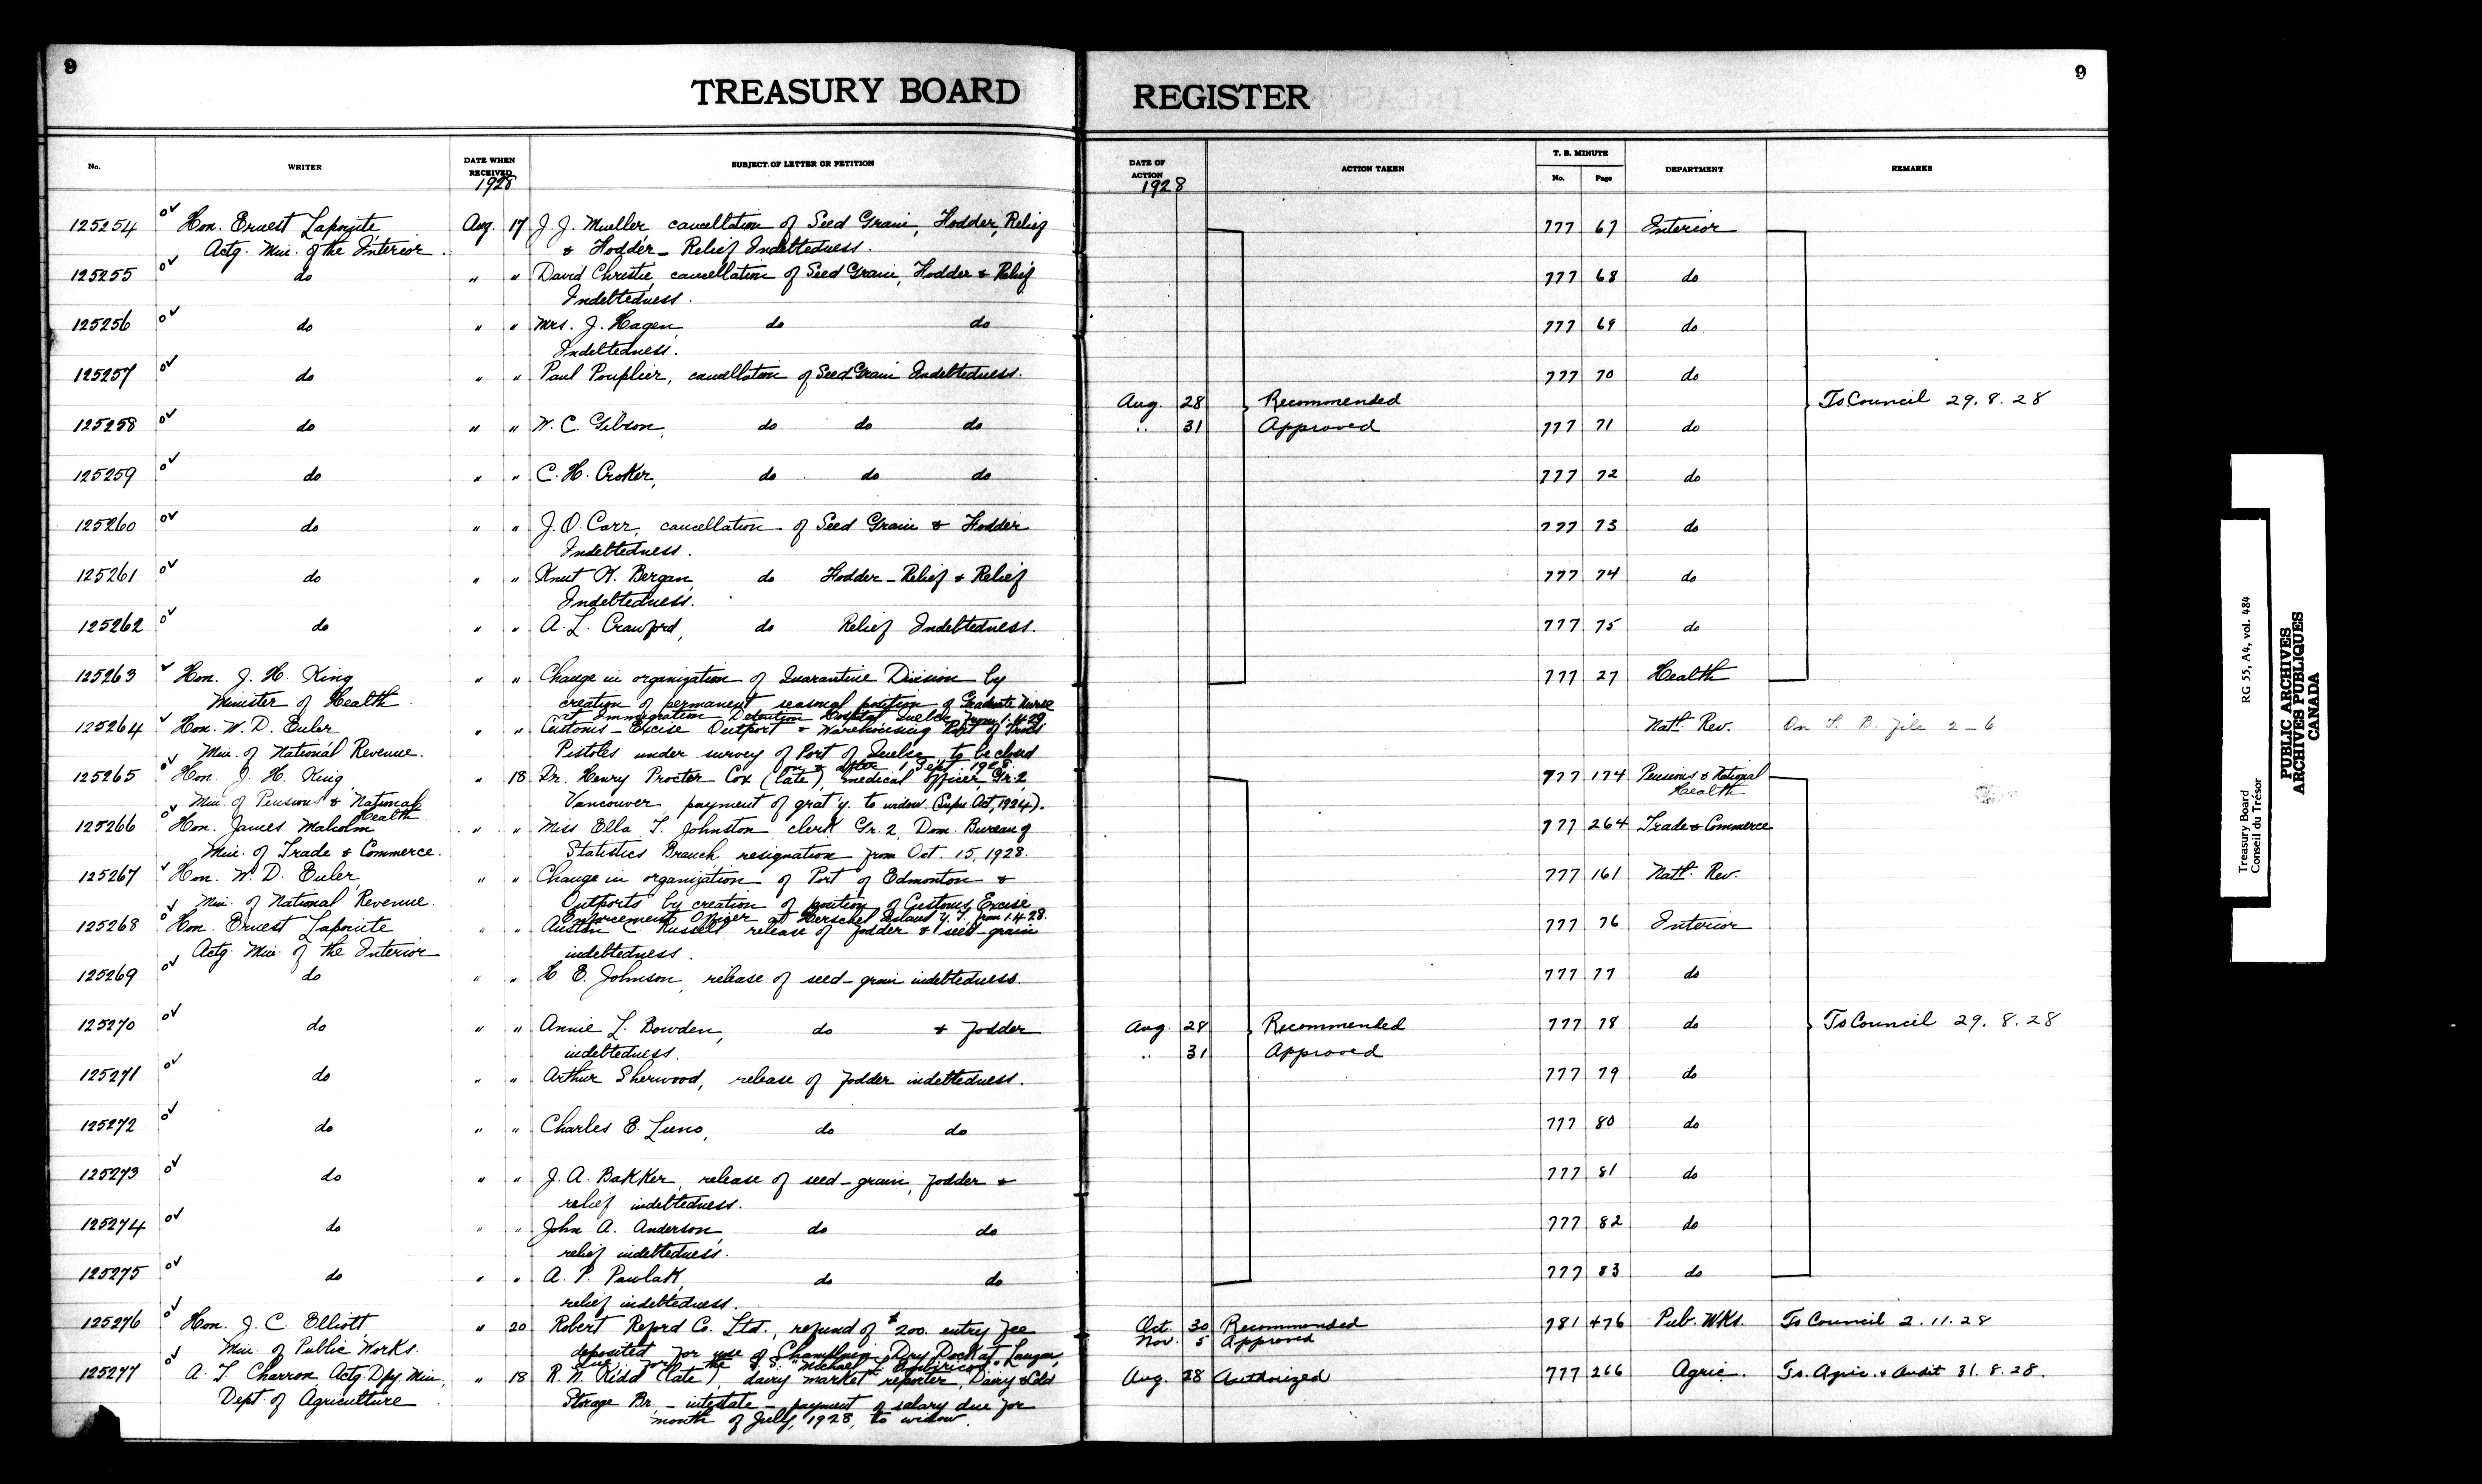 9
TREASURY BOARD REGISTER
9
No. WRITER DATE WHEN RECEIVED SUBJECT OF LETTER OR PETITION DATE OF ACTION ACTION TAKEN T. B. MINUTE No. Page DEPARTMENT REMARKS
1928 1928
125254 Hon. Ernest Lapointe Aug. 17 J. J. Mueller cancellation of Seed Grain, Fodder, Relief 777 67 Interior
Actg. Min. of the Interior. & Fodder - Relief Indebtedness.
125255 do " " David Christie, cancellation of Seed Grain, Fodder & Relief 777 68 do
Indebtedness.
125256 do " " Mrs. J. Hagen, do do 777 69 do
Indebtedness.
125257 do " " Paul Pouplier, cancellation of Seed Grain Indebtedness. 777 70 do
Aug. 28 Recommended To Council 29.8.28
125258 do " " W. C. Gibson, do do do " 31 Approved 777 71 do
125259 do " " C. H. Croker, do do do 777 72 do
125260 do " " J. O. Carr, cancellation of Seed Grain & Fodder 777 73 do
Indebtedness.
125261 do " " Knut K. Bergan, do Fodder - Relief & Relief 777 74 do
Indebtedness.
125262 do " " A. L. Crawford, do Relief Indebtedness. 777 75 do
125263 Hon. J. H. King " " Change in organization of Quarantine Division by 777 27 Health
Minister of Health creation of permanent seasonal position of Graduate Nurse
at Immigration Detention Hospital, Quebec, from 1.4.29.
125264 Hon. W. D. Euler " " Customs-Excise Outport & Warehousing Port of Trois Natl. Rev. On T. B. File 2-6
Min. of National Revenue. Pistoles under survey of Port of Quebec to be closed
on & after 1 Sept. 1928.
125265 Hon. J. H. King " 18 Dr. Henry Procter Cox (late), medical officer, Gr. 2, 777 174 Pensions & National
Health
Min. of Pensions & National Health Vancouver payment of grat'y. to widow (Supn. Act, 1924).
125266 Hon. James Malcolm " " Miss Ella T. Johnston clerk Gr. 2, Dom. Bureau of 777 264 Trade & Commerce
Min. of Trade & Commerce. Statistics Branch, resignation from Oct. 15, 1928.
125267 Hon. W. D. Euler, " " Change in organization of Port of Edmonton & 777 161 Natl. Rev.
Min. of National Revenue. Outports by creation of position of Customs Excise
Enforcement Officer at Herschel Island Y. T. from 1.4.28.
125268 Hon. Ernest Lapointe " " Austin C. Russell release of fodder & seed-grain 777 76 Interior
Actg. Min. of the Interior indebtedness.
125269 do " " H. E. Johnson, release of seed-grain indebtedness. 777 77 do
125270 do " " Annie L. Bowden, do & fodder Aug. 28 Recommended 777 78 do To Council 29.8.28
indebtedness. " 31 Approved
125271 do " " Arthur Sherwood, release of fodder indebtedness. 777 79 do
125272 do " " Charles E. do do 777 80 do
125273 do " " J. A. Bakker, release of seed-grain, fodder & 777 81 do
relief indebtedness.
125274 do " " John A. Anderson, do do 777 82 do
relief indebtedness.
125275 do " " A. P. Pawlak, do do 777 83 do
relief indebtedness.
125276 Hon. J. C. Elliott, " 20 Robert Reford Co. Ltd., refund of $200. entry fee Oct. 30 Recommended 781 476 Pub. Wks. To Council 2.11.28
Min. of Public Works. deposited for use of Champlain Dry Dock at Lauzon, Nov. 5 Approved
Que., for the S.S. "Michael L.
125277 A. T. Charron Actg. Dpy. Min., " 18 R. N. Kidd (late), dairy market reporter, Dairy & Cold Aug. 28 Authorized 777 266 Agric. To Agric. & Audit 31.8.28.
Dept. of Agriculture Storage Br. - intestate - payment of salary due for
month of July, 1928, to widow.
Treasury Board
Conseil du Trésor
RG 55, A4, vol. 484
PUBLIC ARCHIVES
ARCHIVES PUBLIQUES
CANADA